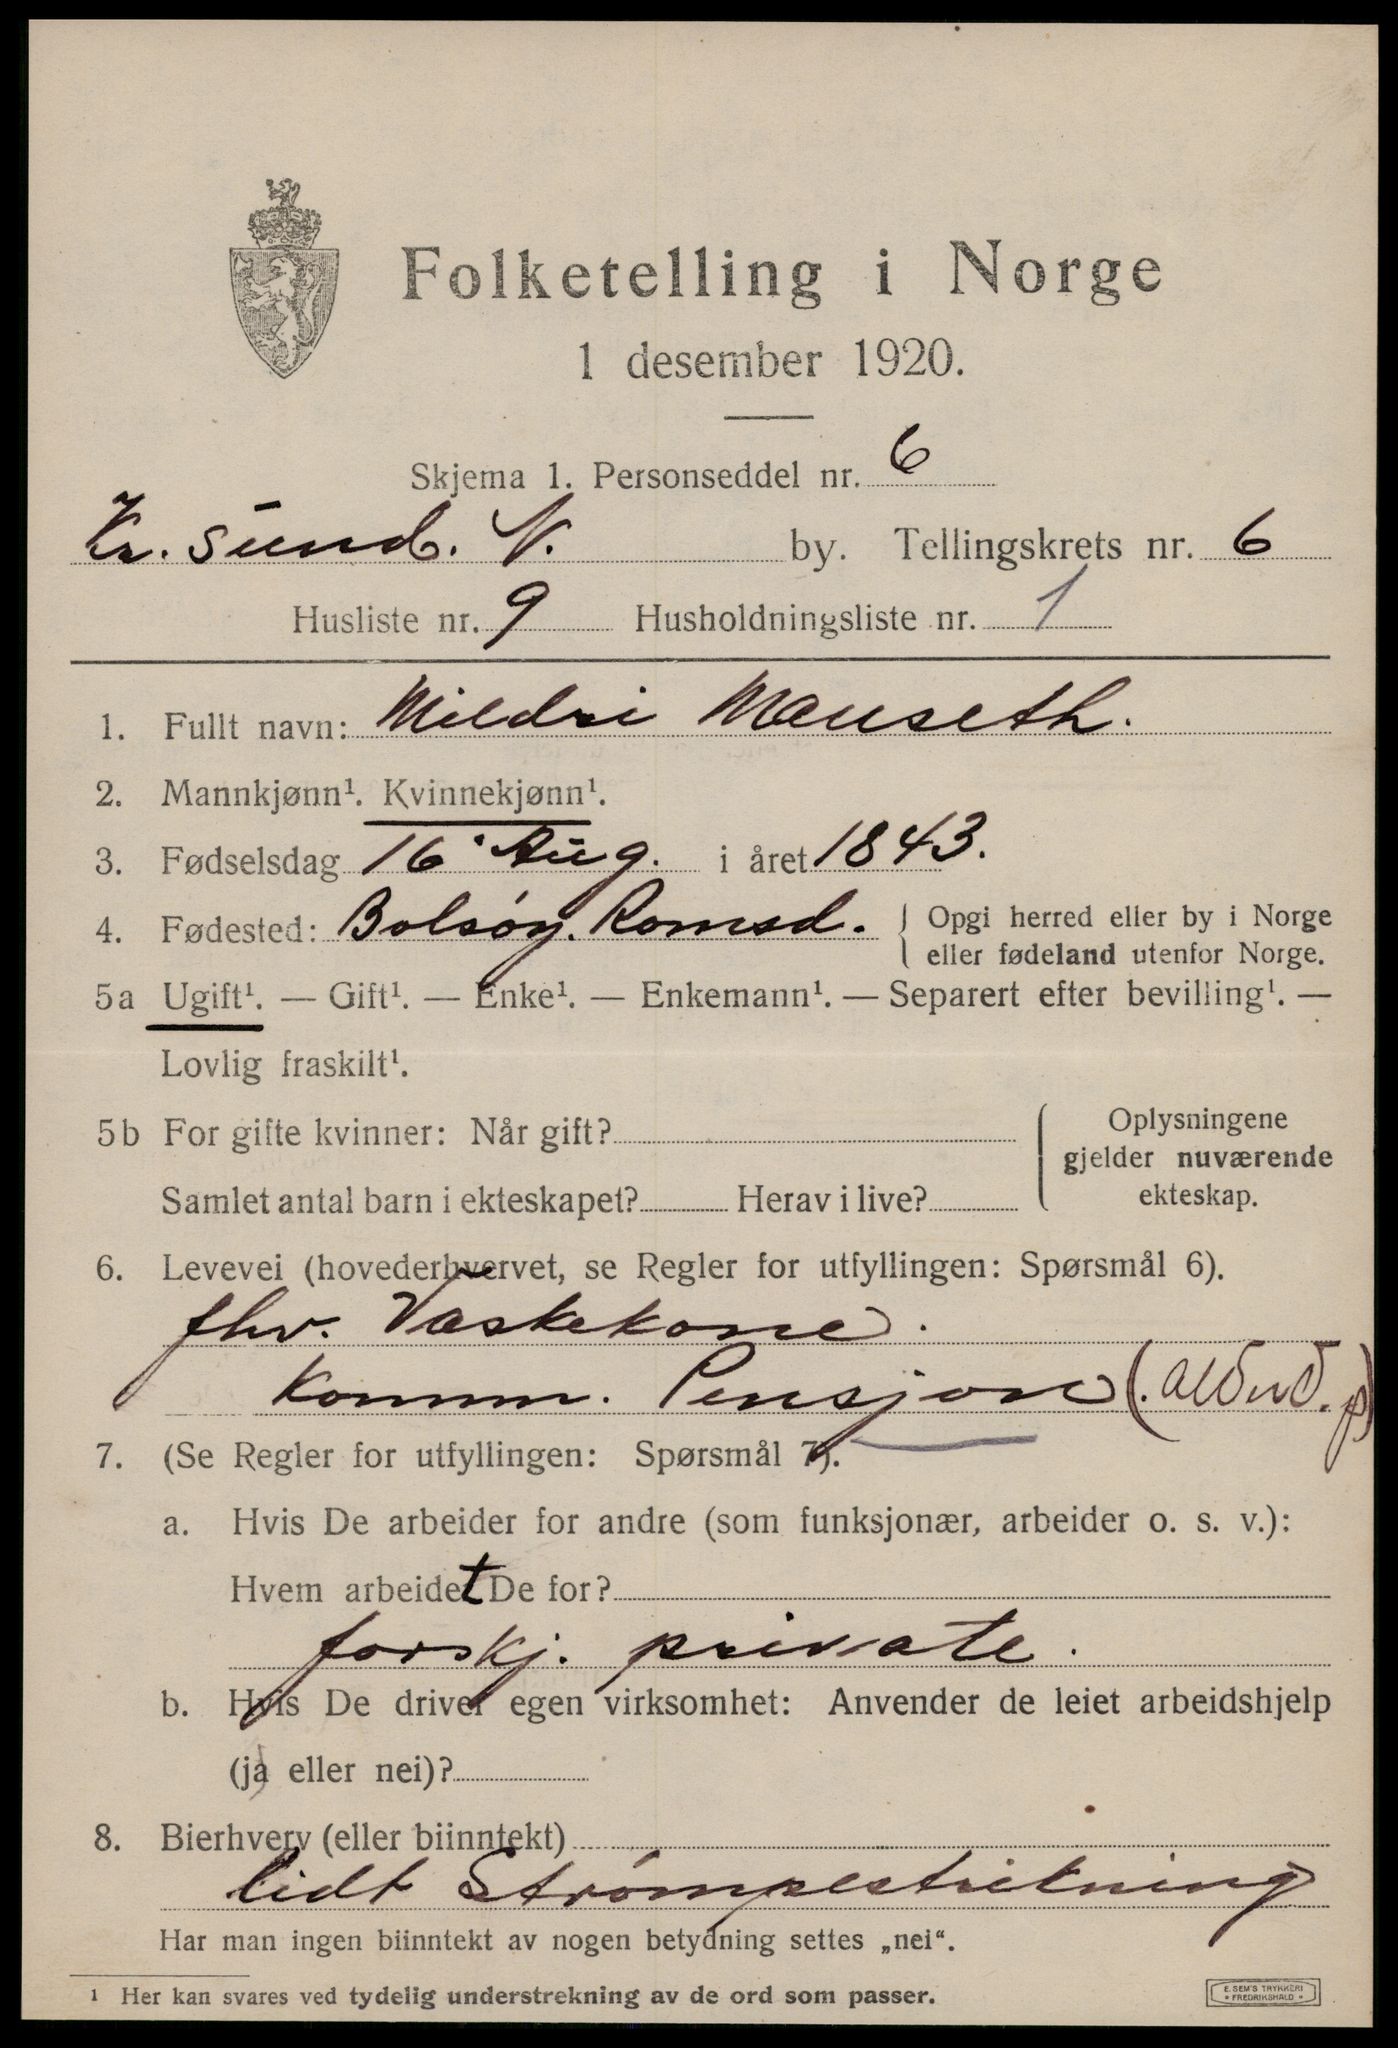 Folketelling i Norge
1 desember 1920.
Skjema 1. Personseddel nr. 6
Kr.sund. N. by. Tellingskrets nr. 6
Husliste nr. 9 Husholdningsliste nr. 1
1. Fullt navn: Mildri Mauseth.
2. Mannkjønn¹. Kvinnekjønn¹.
3. Fødselsdag 16 Aug. i året 1843.
4. Fødested: Bolsøy. Romsd. { Opgi herred eller by i Norge
eller fødeland utenfor Norge.
5a Ugift¹. — Gift¹. — Enke¹. — Enkemann¹. — Separert efter bevilling¹. —
Lovlig fraskilt¹.
5b For gifte kvinner: Når gift?
Oplysningene
gjelder nuværende
ekteskap.
Samlet antal barn i ekteskapet? Herav i live?
6. Levevei (hovederhvervet, se Regler for utfyllingen: Spørsmål 6).
fhv. Vaskekone.
Komm. Pensjon (. p)
7. (Se Regler for utfyllingen: Spørsmål 7).
a. Hvis De arbeider for andre (som funksjonær, arbeider o. s. v.):
Hvem arbeidet De for?
forskj. private.
b. Hvis De driver egen virksomhet: Anvender de leiet arbeidshjelp
(ja eller nei)?
8. Bierhverv (eller biinntekt)
lidt Strømpestrikning
Har man ingen biinntekt av nogen betydning settes „nei“.
¹ Her kan svares ved tydelig understrekning av de ord som passer.
E. SEM'S TRYKKERI
* FREDRIKSHALD *